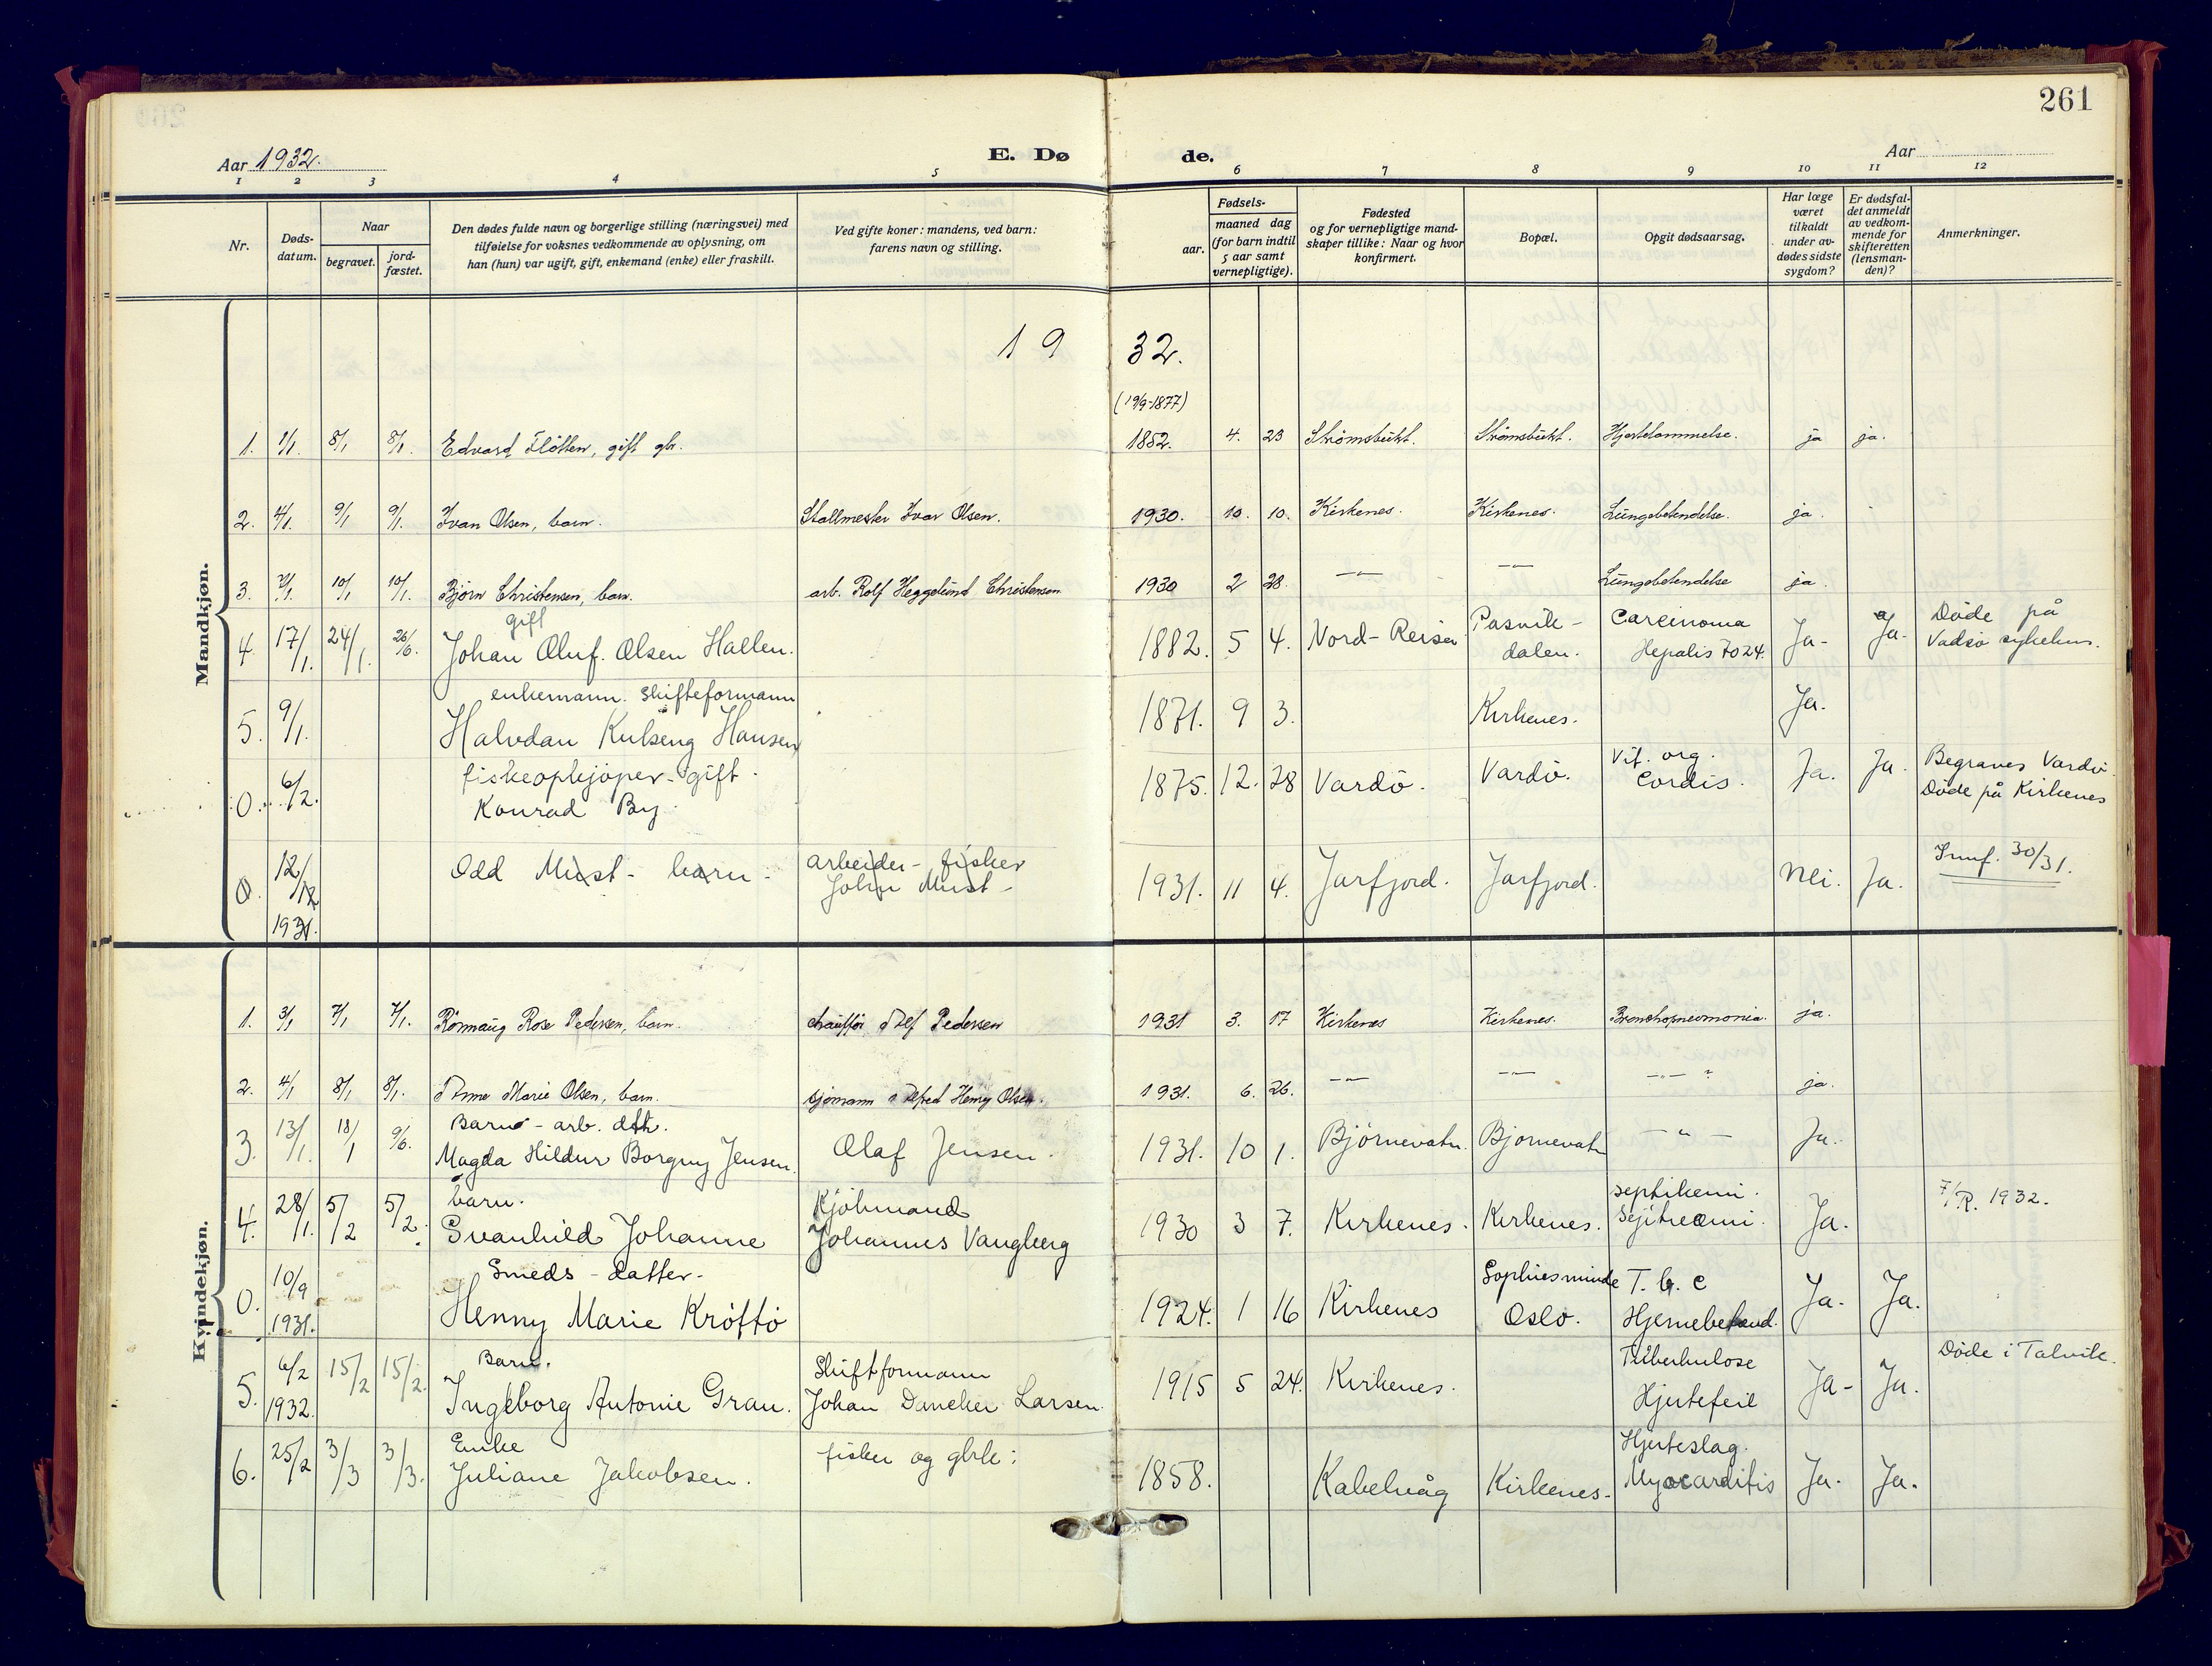 261
Aar 1932. E. Døde. Aar
1 2 3 4 5 6 7 8 9 10 11 12
Nr. Døds-datum. Naar begravet. jord-fæstet. Den dødes fulde navn og borgerlige stilling (næringsvei) med tilføielse for voksnes vedkommende av oplysning, om han (hun) var ugift, gift, enkemand (enke) eller fraskilt. Ved gifte koner: mandens, ved barn: farens navn og stilling. Fødsels- aar. maaned dag (for barn indtil 5 aar samt vernepligtige). Fødested og for vernepligtige mand-skaper tillike: Naar og hvor konfirmert. Bopæl. Opgit dødsaarsag. Har læge været tilkaldt under av-dødes sidste sygdom? Er dødsfal-det anmeldt av vedkom-mende for skifteretten (lensman-den)? Anmerkninger.
1932.
Mandkjøn.
(19/9-1877)
1. 1/1. 8/1 8/1. Edvard Fløtten, gift gbr. 1852. 4. 23 Strømsbukt. Strømsbukt. Hjertelammelse. ja ja.
2. 4/1. 9/1 9/1. Ivan Olsen, barn. Stallmester Ivar Olsen. 1930. 10. 10. Kirkenes. Kirkenes. Lungebetendelse. ja.
3. 7/1. 10/1 10/1. Bjørn Christensen, barn. arb. Rolf Heggelund Christensen 1930 2 28. -"- -"- Lungebetendelse ja.
gift Pasvik- Carcinoma Døde på
4. 17/1. 24/1. 26/6. Johan Oluf. Olsen Hallen. 1882. 5 4. Nord-Reisen dalen. Hepatis 7024. Ja- Ja. Vadsø sykehus.
enkemann. Skifteformann
5. 9/1. Halvdan Kulseng Hansen 1871. 9 3. Kirkenes. Ja.
fiskeopkjøper-gift. Vit. org. Begraves Vardø.
0. 6/2. Konrad By. 1875. 12. 28 Vardø. Vardø. Cordis. Ja. Ja. Døde på Kirkenes
arbeider- fisker Innf. 30/31.
0. 12/12 1931. Odd Must- barn- John Must- 1931. 11 4. Jarfjord. Jarfjord. Nei. Ja.
Kvindekjøn.
1. 3/1 7/1 7/1. Rønnaug Rose Pedersen, barn. chauffør Alf Pedersen 1931 3. 17 Kirkenes Kirkenes. Bronchopneumonia. ja.
2. 4/1 8/1 8/1. Anne Marie Olsen, barn. sjømann Alfred Henry Olsen. 1931. 6. 26. -"- -"- -"- ja.
Barn - arb. dtr.
3. 13/1. 18/1 9/6. Magda Hildur Borgny Jensen. Olaf Jensen. 1931. 10 1. Bjørnevatn. Bjørnevatn -"- Ja.
barn. Kjøbmand septikemi. 7/R. 1932.
4. 28/1. 5/2 5/2. Svanhild Johanne Johannes Vangberg 1930 3 7. Kirkenes. Kirkenes. Ja.
Smeds-datter- Sophiesminde T.b.c
0. 10/9 1931. Henny Marie Krøftø 1924. 1 16 Kirkenes Oslo. Hjernebetend. Ja. Ja.
Barn. Skiftformann Tuberkulose Døde i Talvik.
5. 6/2 1932. 15/2 15/2. Ingeborg Antonie Grau. Johan Daneker Larsen. 1915 5 24. Kirkenes. Hjertefeil Ja- Ja.
Enke fisker og gbrk: Hjerteslag.
6. 25/2 3/3 3/3. Juliane Jakobsen. 1858. Kabelvåg Kirkenes. Myocarditis Ja. Ja.